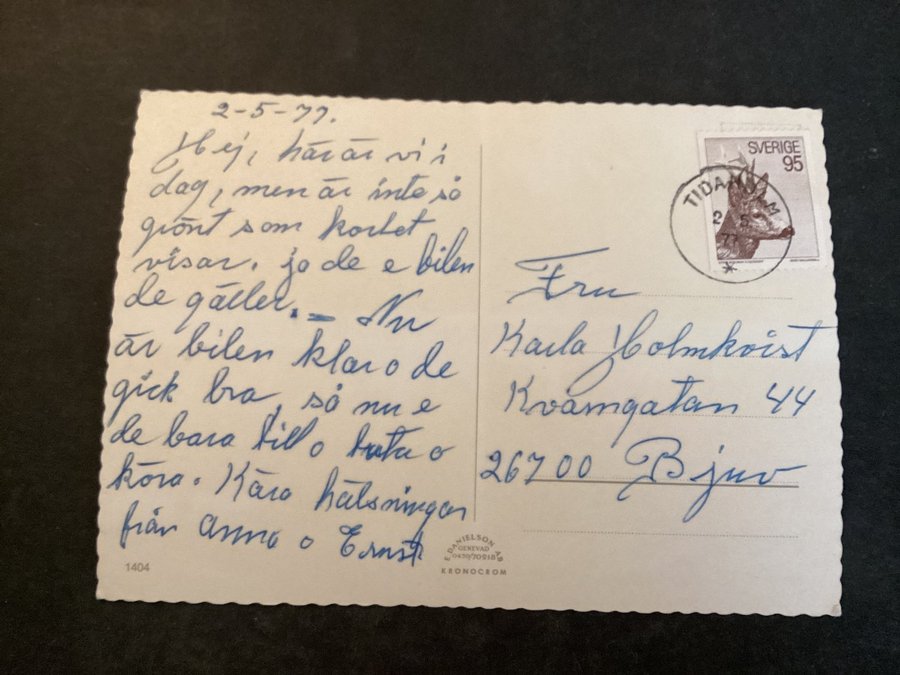 2-5-77.
Hej, här är vi i
dag, men är inte så
grönt som kortet
visar. ja de e bilen
de gäller. – Nu
är bilen klar o de
gick bra, så nu e
de bara till o tuta o
köra. Kära hälsningar
från Anna o Ernst
1404
SVERIGE
95
TIDAHOLM
2 5
77
Fru
Karla Holmkvist
Kvarngatan 44
26700 Bjuv
E. DANIELSON AB
GENEVAD
0430/70918
KRONOCROM